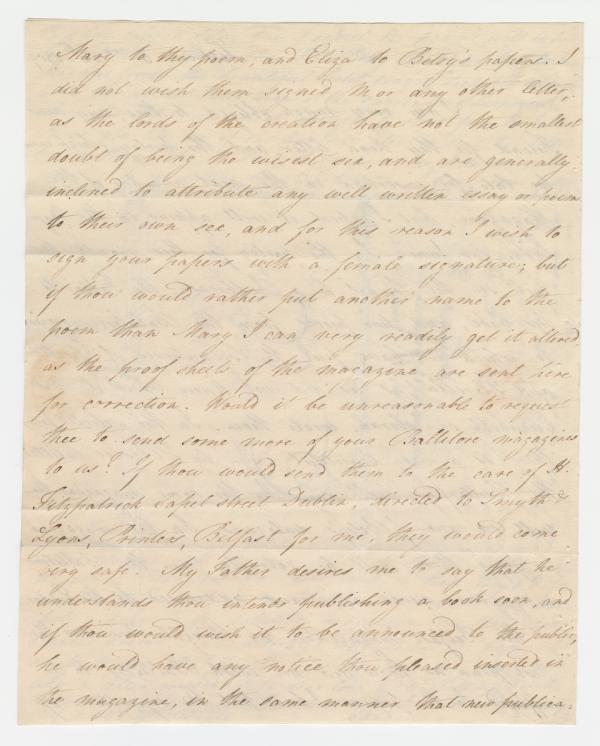 Mary to thy poem, and Eliza to Betsy's papers. I
did not wish them signed M or any other letter,
as the lords of the creation have not the smallest
doubt of being the wisest sex, and are generally
inclined to attribute any well written essay or poem
to their own sex, and for this reason I wish to
sign your papers with a female signature; but
if thou would rather put another name to the
poem than Mary I can very readily get it altered,
as the proof sheets of the magazine are sent here
for correction. Would it be unreasonable to request
thee to send some more of your Ballitore magazines
to us? If thou would send them to the care of H.
Fitzpatrick Capel street Dublin, directed to Smyth &
Lyons, Printers, Belfast for me, they would come
very safe. My Father desires me to say that he
understands thou intends publishing a book soon, and
if thou would wish it to be announced to the public,
he would have any notice thou pleased inserted in
the magazine, in the same manner that new publica=